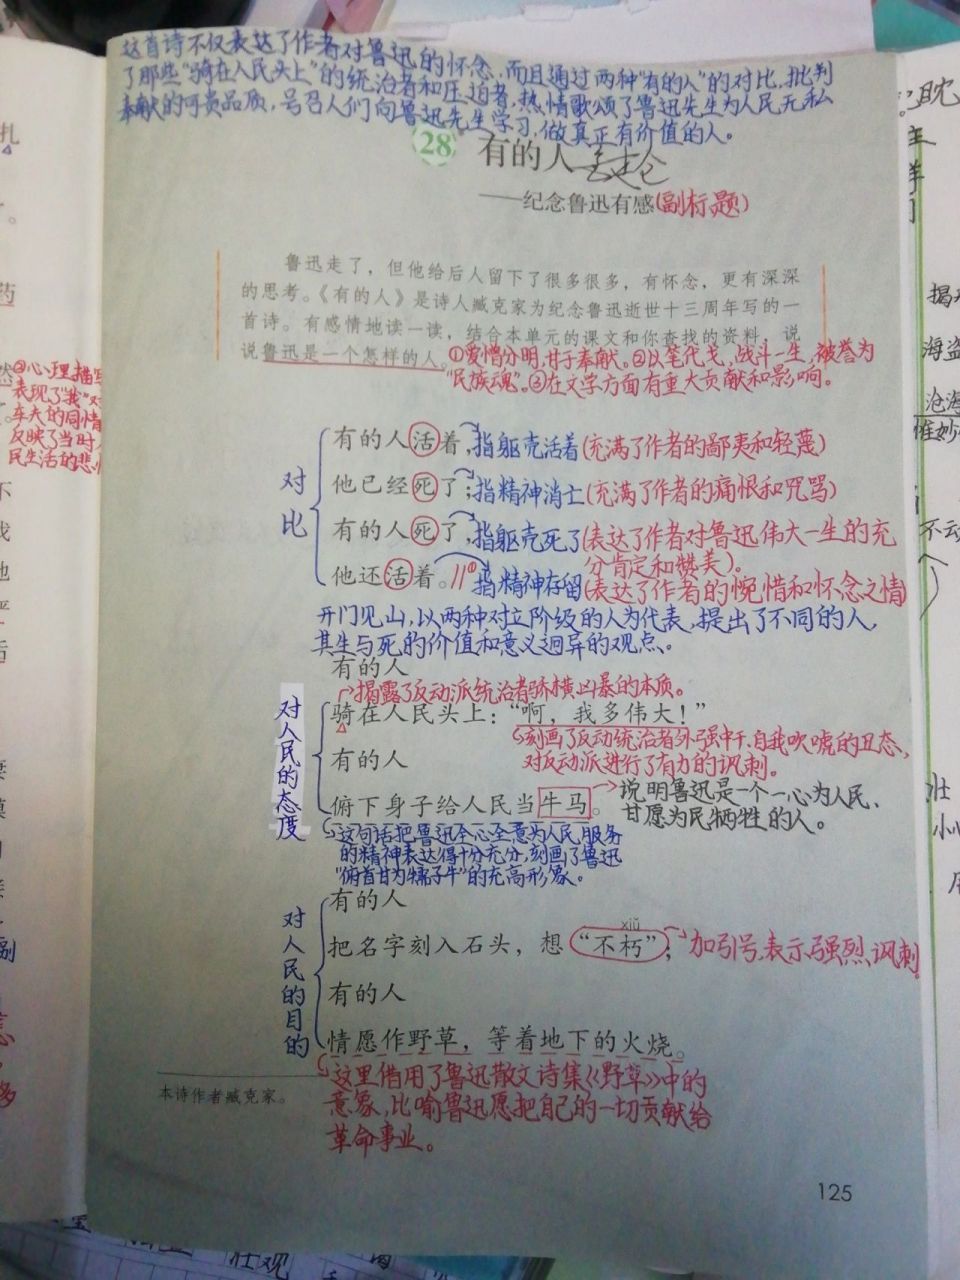 这首诗不仅表达了作者对鲁迅的怀念,而且通过两种"有的人"的对比,批判
了那些"骑在人民头上"的统治者和压迫者,热情歌颂了鲁迅先生为人民无私
奉献的可贵品质,号召人们向鲁迅先生学习,做真正有价值的人。
28 有的人
——纪念鲁迅有感(副标题)
鲁迅走了,但他给后人留下了很多很多,有怀念,更有深深
的思考。《有的人》是诗人臧克家为纪念鲁迅逝世十三周年写的一
首诗。有感情地读一读,结合本单元的课文和你查找的资料,说
说鲁迅是一个怎样的人。①爱憎分明,甘于奉献。②以笔代戈,战斗一生,被誉为
"民族魂"。③在文学方面有重大贡献和影响。
对比
有的人活着,指躯壳活着(充满了作者的鄙夷和轻蔑)
他已经死了;指精神消亡(充满了作者的痛恨和咒骂)
有的人死了,指躯壳死了(表达了作者对鲁迅伟大一生的充
分肯定和赞美)。
他还活着。//①指精神存留(表达了作者的惋惜和怀念之情)
开门见山,以两种对立阶级的人为代表,提出了不同的人,
其生与死的价值和意义迥异的观点。
有的人
揭露了反动派统治者骄横凶暴的本质。
对人民的态度
骑在人民头上:"啊,我多伟大!"
刻画了反动统治者外强中干,自我吹嘘的丑态,
对反动派进行了有力的讽刺。
有的人
俯下身子给人民当牛马。
说明鲁迅是一个一心为人民,
甘愿为民牺牲的人。
这句话把鲁迅全心全意为人民服务
的精神表达得十分充分,刻画了鲁迅
"俯首甘为孺子牛"的充高形象。
对人民的目的
有的人
xiǔ
把名字刻入石头,想"不朽";加引号,表示强烈讽刺
有的人
情愿作野草,等着地下的火烧。
这里借用了鲁迅散文诗集《野草》中的
意象,比喻鲁迅愿把自己的一切贡献给
革命事业。
本诗作者臧克家。
125
②心理描写
表现了"我"对
车夫的同情
反映了当时人
民生活的悲
揭
海盗
沧海
惟妙
不动
壮观